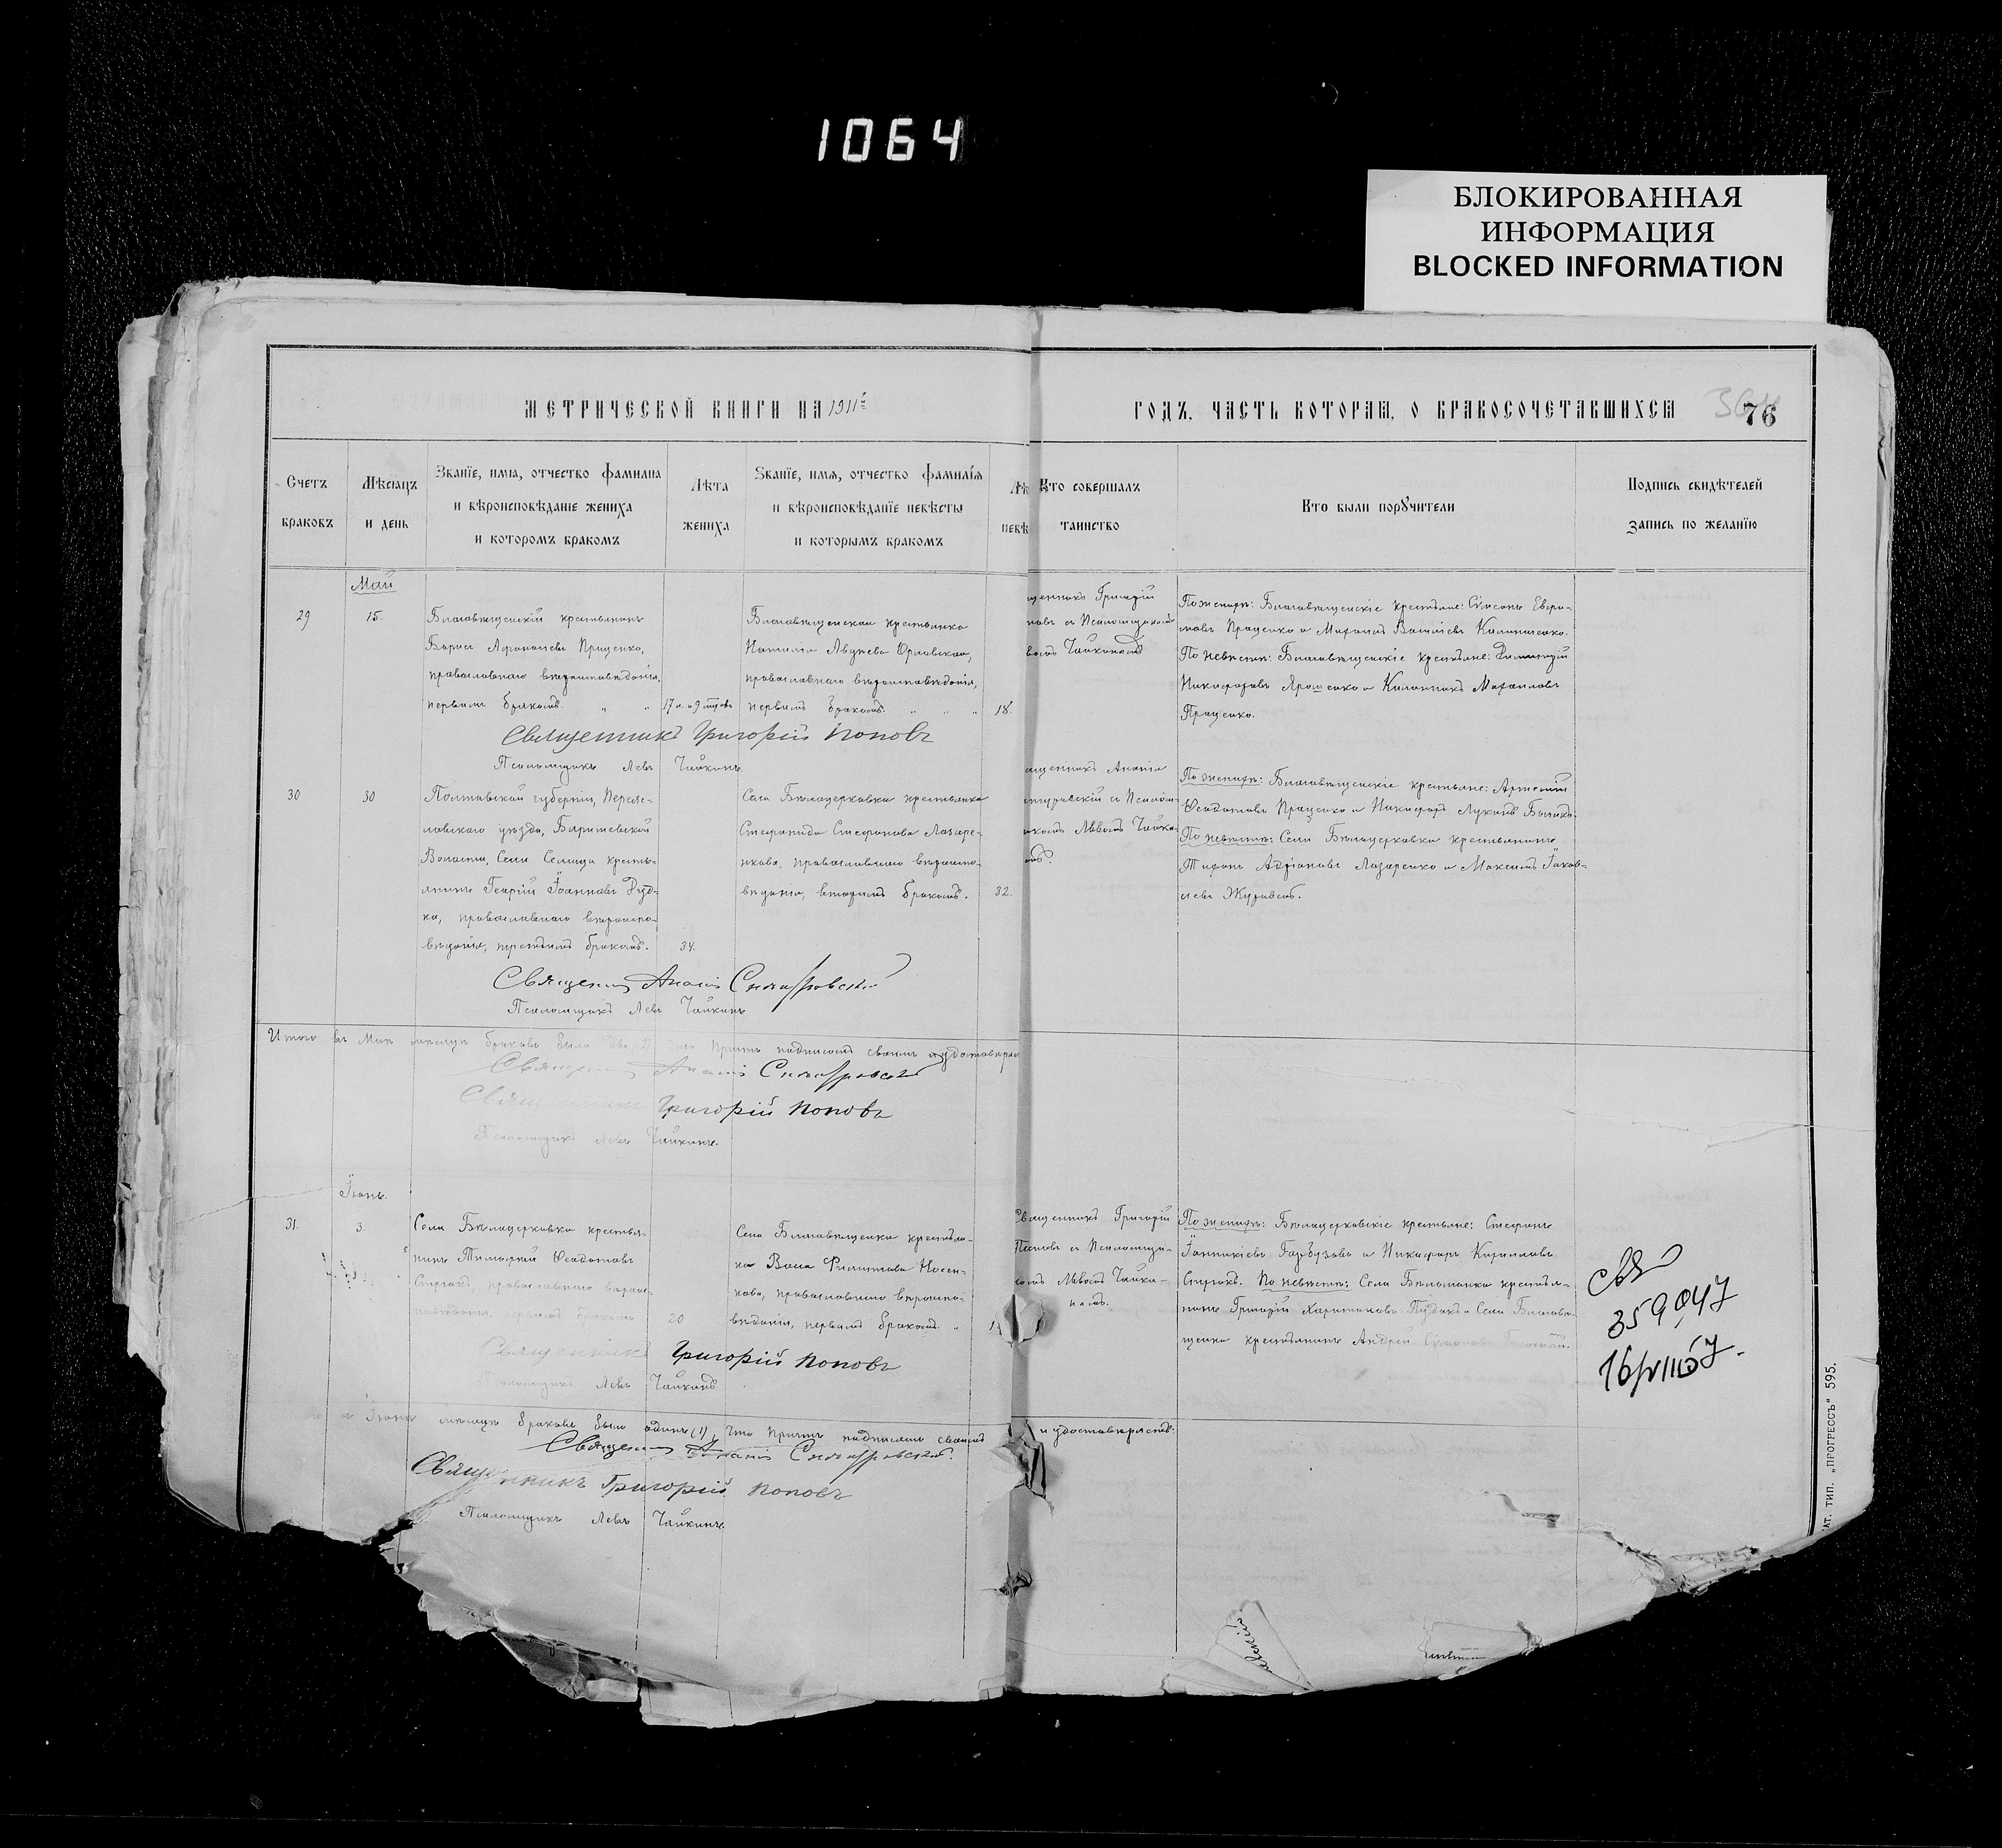 1064
БЛОКИРОВАННАЯ
ИНФОРМАЦИЯ
BLOCKED INFORMATION
МЕТРИЧЕСКОЙ КНИГИ НА 1911й
ГОДЪ, ЧАСТЬ ВТОРАЯ, О БРАКОСОЧЕТАВШИХСЯ
76
Счетъ
браковъ
Мѣсяцъ
и день
Званїе, имя, отчество фамилия
и вѣроисповѣданїе жениха
и которомъ бракомъ
Лѣта
жениха
Званїе, имя, отчество фамилїя
и вѣроисповѣданїе невѣсты
и которымъ бракомъ
Лѣ
невѣ
Кто совершалъ
таинство
Кто были порꙋчители
Подпись свидѣтелей
запись по желанїю
Май
29
15.
Благовѣщенскій крестьянинъ
Борисъ Афанасіевъ Проценко,
православнаго вѣроисповѣданія,
первымъ бракомъ. " "
17 л. и 9 мѣсяцовъ
Благовѣщенская крестьянка
Наталія Авдѣева Орловская,
православнаго вѣроисповѣданія,
первымъ бракомъ. " " "
18.
щенникъ Григорій
повъ съ Псаломщикомъ
вомъ Чайкинымъ
По женихѣ: Благовѣщенскіе крестьяне: Сѵмеонъ
Проценко и Михаилъ Василіевъ
По невѣстѣ: Благовѣщенскіе крестьяне: Димитрій
Никифоровъ Ярошенко и Каллиникъ Михаиловъ
Проценко.
Священникъ Григорій Поповъ
Псаломщикъ Левъ Чайкинъ.
30
30
Полтавской губерніи, Переяс-
лавскаго уѣзда, Барышевской
Волости, Села Селища кресть-
янинъ Георгій Іоанновъ Дуд-
ка, православнаго вѣроиспо-
вѣданія, третьимъ бракомъ.
34.
Села Бѣлоцерковки крестьянка
Стефанида Стефанова Лазаре-
нкова, православнаго вѣроиспо-
вѣданія, вторымъ бракомъ.
32.
щенникъ Ананія
съ Псалом-
щикомъ Львомъ Чайки-
нымъ.
По женихѣ: Благовѣщенскіе крестьяне: Артемій
Ѳеодотовъ Проценко и Никифоръ Лукинъ
По невѣстѣ: Села Бѣлоцерковки крестьянинъ
Тифонъ Адріановъ Лазаренко и Максимъ Іаков-
левъ Журавель.
Священникъ Ананія
Псаломщикъ Левъ Чайкинъ
Итого въ Маѣ мѣсяцѣ браковъ было два (2) что Причтъ подписомъ своимъ и удостовѣря
Священникъ Ананія
Священникъ Григорій Поповъ
Псаломщикъ Левъ Чайкинъ.
Іюнь.
31.
3
Села Бѣлоцерковки крестья-
нинъ Тимофей Ѳеодотовъ
православнаго вѣроис-
повѣданія, первымъ бракомъ
20
Села Благовѣщенки крестьян-
ка Васса Филиппова Носен-
кова, православнаго вѣроиспо-
вѣданія, первымъ бракомъ. "
Священникъ Григорій
Поповъ съ Псаломщи-
комъ Львомъ Чайки-
нымъ.
По женихѣ: Бѣлоцерковскіе крестьяне: Стефанъ
Іоанникіевъ Гарбузовъ и Никифоръ Кирилловъ
По невѣстѣ: Села Бѣльманки крестья-
нинъ Григорій Харитоновъ и Села Благовѣ-
щенки крестьянинъ Андрей
359,047
Священникъ Григорій Поповъ
Псаломщикъ Левъ Чайкинъ
Іюнѣ мѣсяцѣ браковъ было одинъ (1), что Причтъ подписомъ своимъ и удостовѣряетъ:
Священникъ Ананія
Священникъ Григорій Поповъ
Псаломщикъ Левъ Чайкинъ.
АТ. ТИП. „ПРОГРЕССЪ" 595.